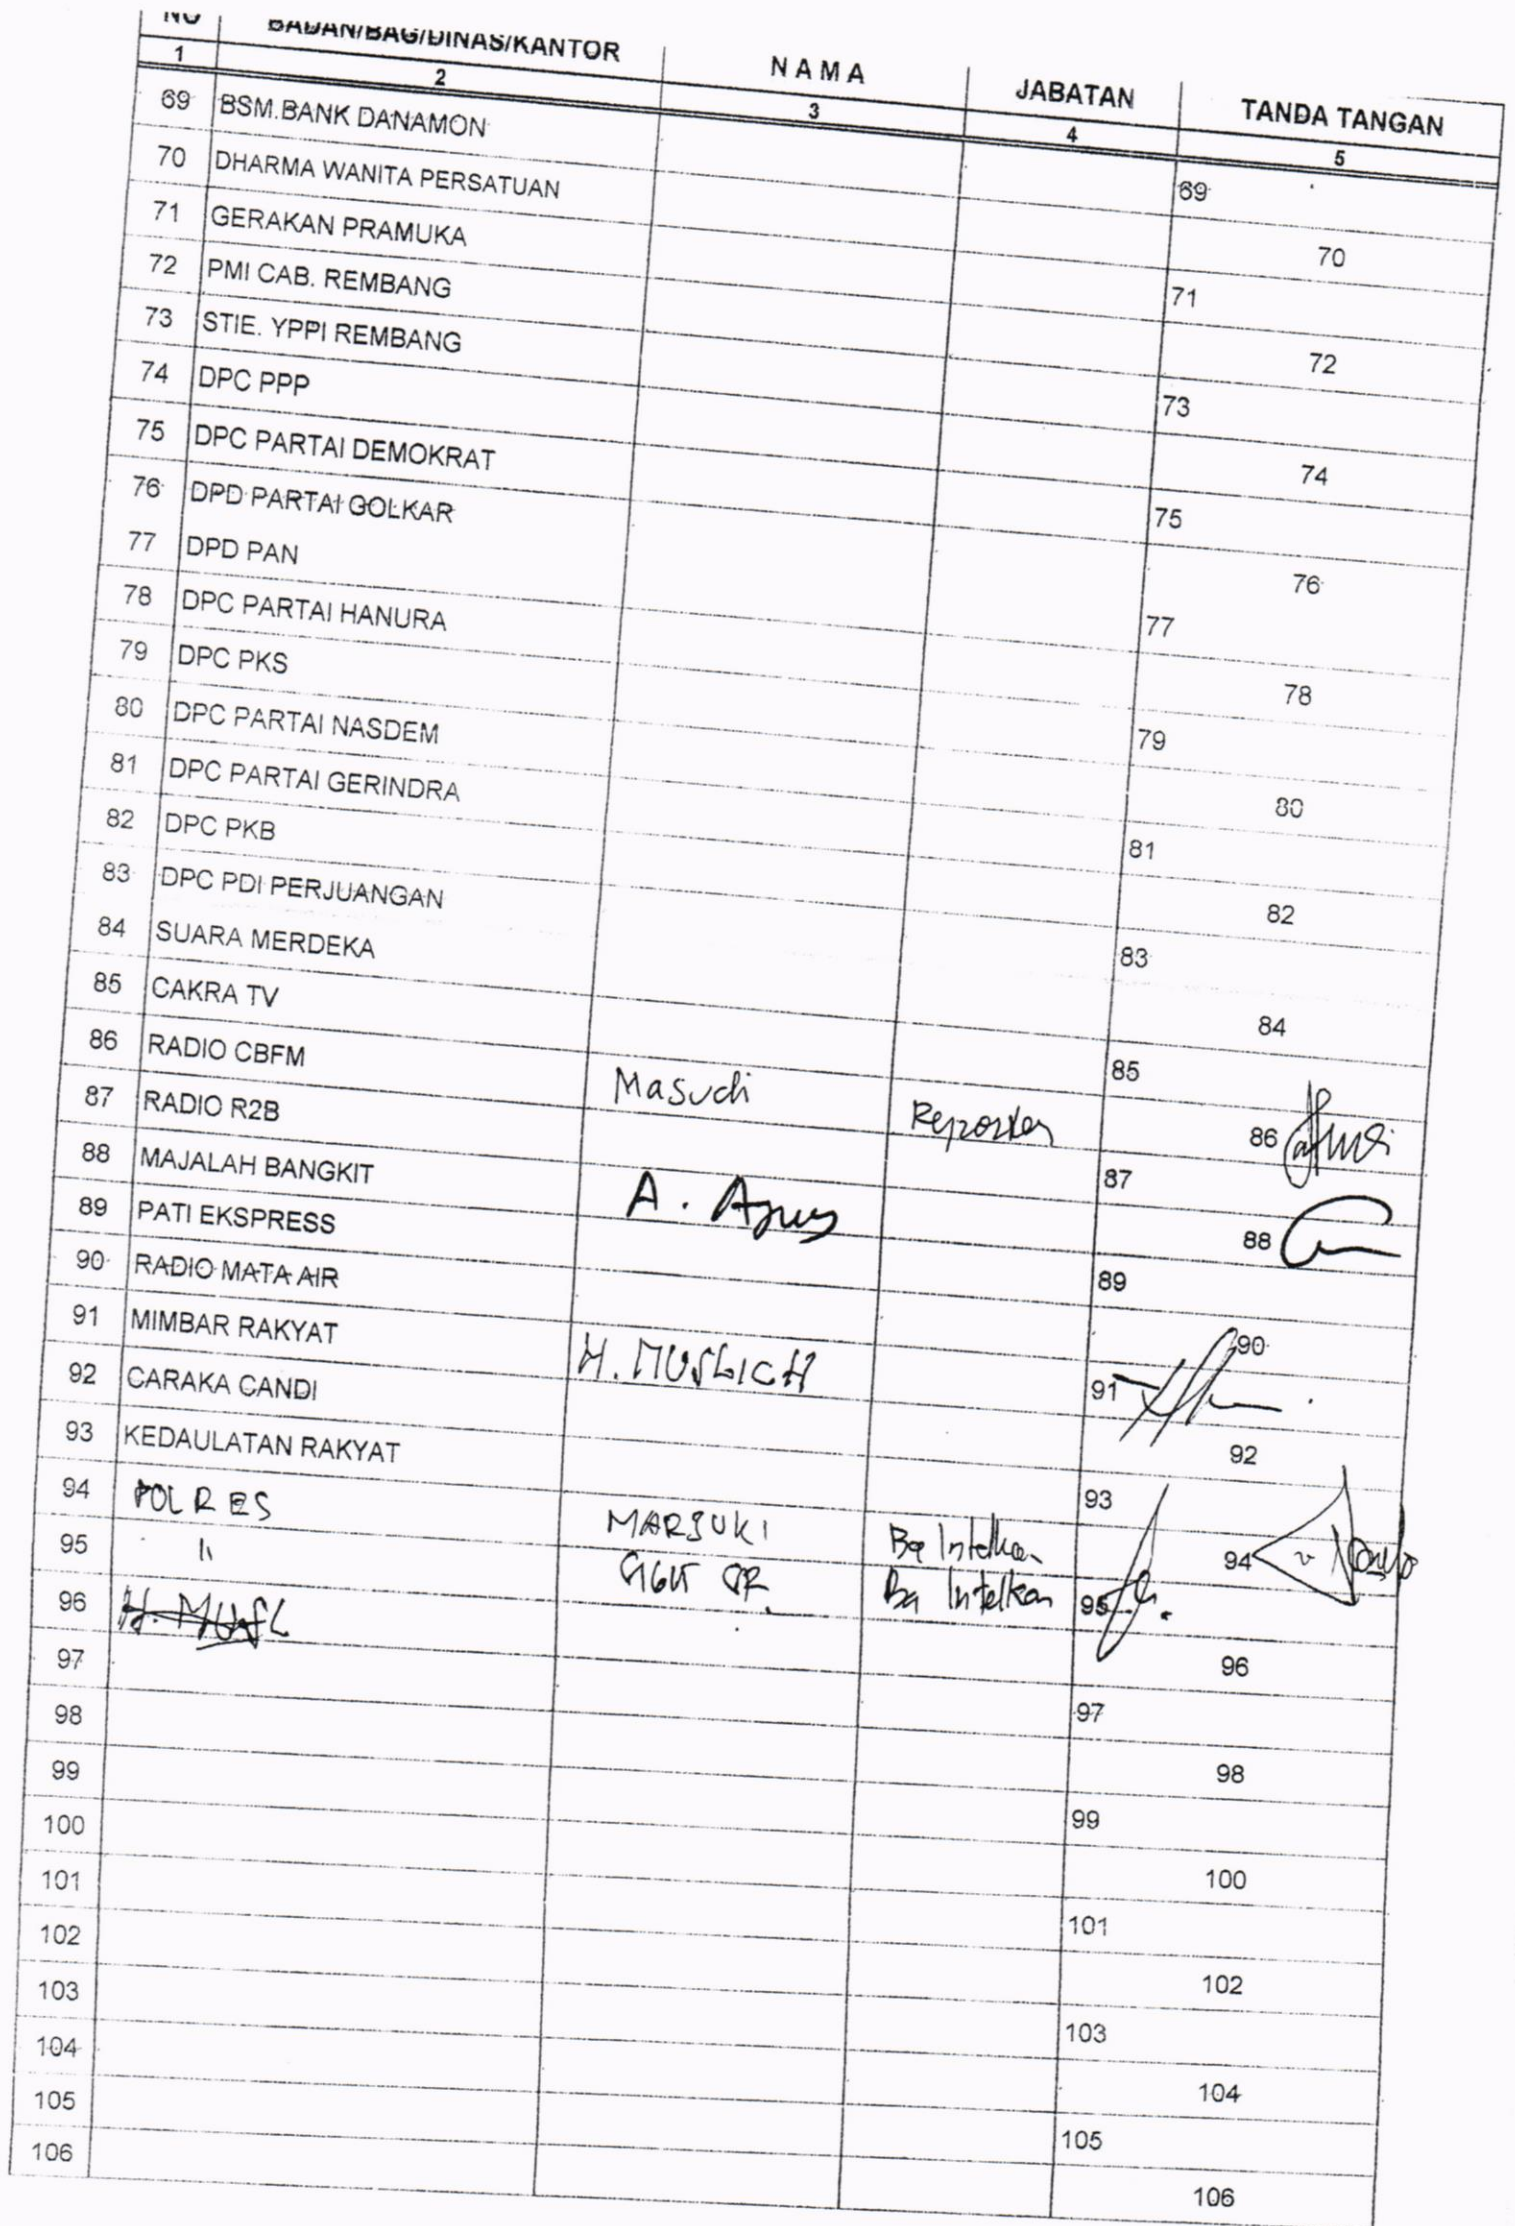 NO BADAN/BAG/DINAS/KANTOR N A M A JABATAN TANDA TANGAN
1 2 3 4 5
69 BSM.BANK DANAMON 69
70 DHARMA WANITA PERSATUAN 70
71 GERAKAN PRAMUKA 71
72 PMI CAB. REMBANG 72
73 STIE. YPPI REMBANG 73
74 DPC PPP 74
75 DPC PARTAI DEMOKRAT 75
76 DPD PARTAI GOLKAR 76
77 DPD PAN 77
78 DPC PARTAI HANURA 78
79 DPC PKS 79
80 DPC PARTAI NASDEM 80
81 DPC PARTAI GERINDRA 81
82 DPC PKB 82
83 DPC PDI PERJUANGAN 83
84 SUARA MERDEKA 84
85 CAKRA TV 85
86 RADIO CBFM Masudi Reporter 86
87 RADIO R2B 87
88 MAJALAH BANGKIT A. Agus 88
89 PATI EKSPRESS 89
90 RADIO MATA AIR 90
91 MIMBAR RAKYAT H. MUSLICH 91
92 CARAKA CANDI 92
93 KEDAULATAN RAKYAT 93
94 POLRES MARJUKI Ba Intelkam 94
95 " Ba Intelkam 95
96 H. MUSL 96
97 97
98 98
99 99
100 100
101 101
102 102
103 103
104 104
105 105
106 106